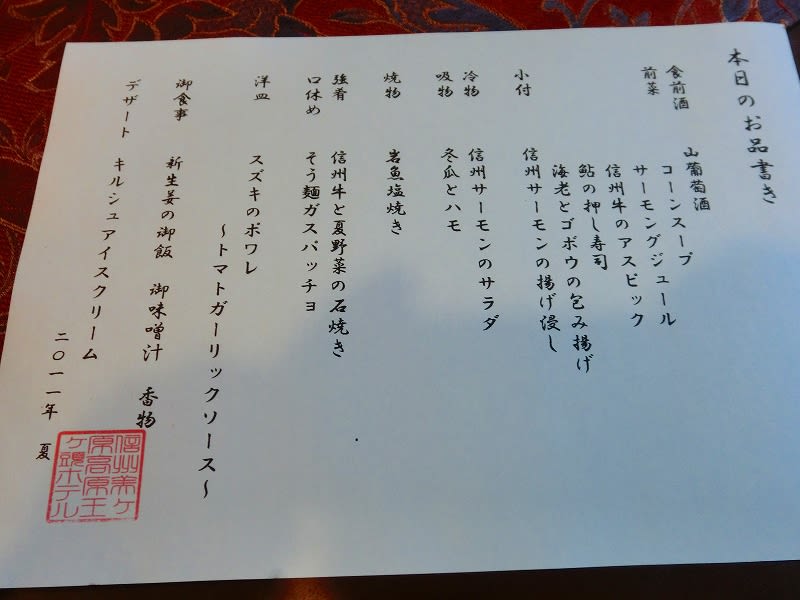 本日のお品書き
食前酒 山葡萄酒
前菜 コーンスープ
サーモングジュール
信州牛のアスピック
鮎の押し寿司
海老とゴボウの包み揚げ
小付 信州サーモンの揚げ浸し
冷物 信州サーモンのサラダ
吸物 冬瓜とハモ
焼物 岩魚塩焼き
強肴 信州牛と夏野菜の石焼き
口休め そう麺ガスパッチョ
洋皿 スズキのポワレ
～トマトガーリックソース～
御食事 新生姜の御飯 御味噌汁 香物
デザート キルシュアイスクリーム
二〇一一年 夏
信州美ヶ
原高原王
ヶ頭ホテル